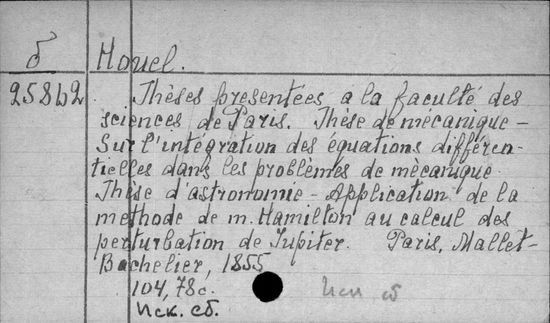 б Houel.
25862 Thèses presentées a la faculté des
sciences de Paris. Thèse de mécanique -
Sur l'intégration des équations différen-
tielles dans les problèmes de mècanique.
Thèse d'astronomie - Application de la
methode de m. Hamilton au calcul des
perturbation de Jupiter. Paris, Mallet-
Bachelier, 1855
104, 78 с.
Иск. сб. Иси сб